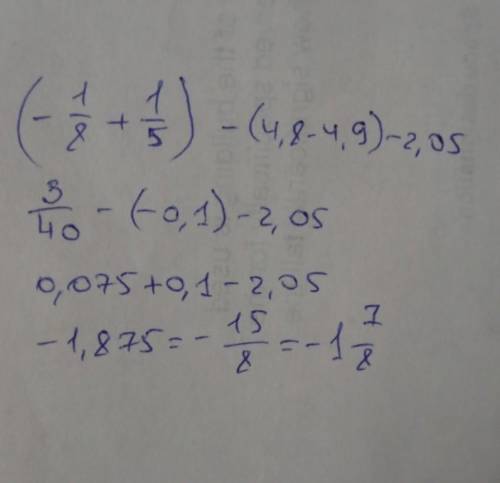 (-1/8 + 1/5) - (4,8-4,9)-2,05
3/40 - (-0,1)-2,05
0,075+0,1-2,05
-1,875=-15/8=-1 7/8